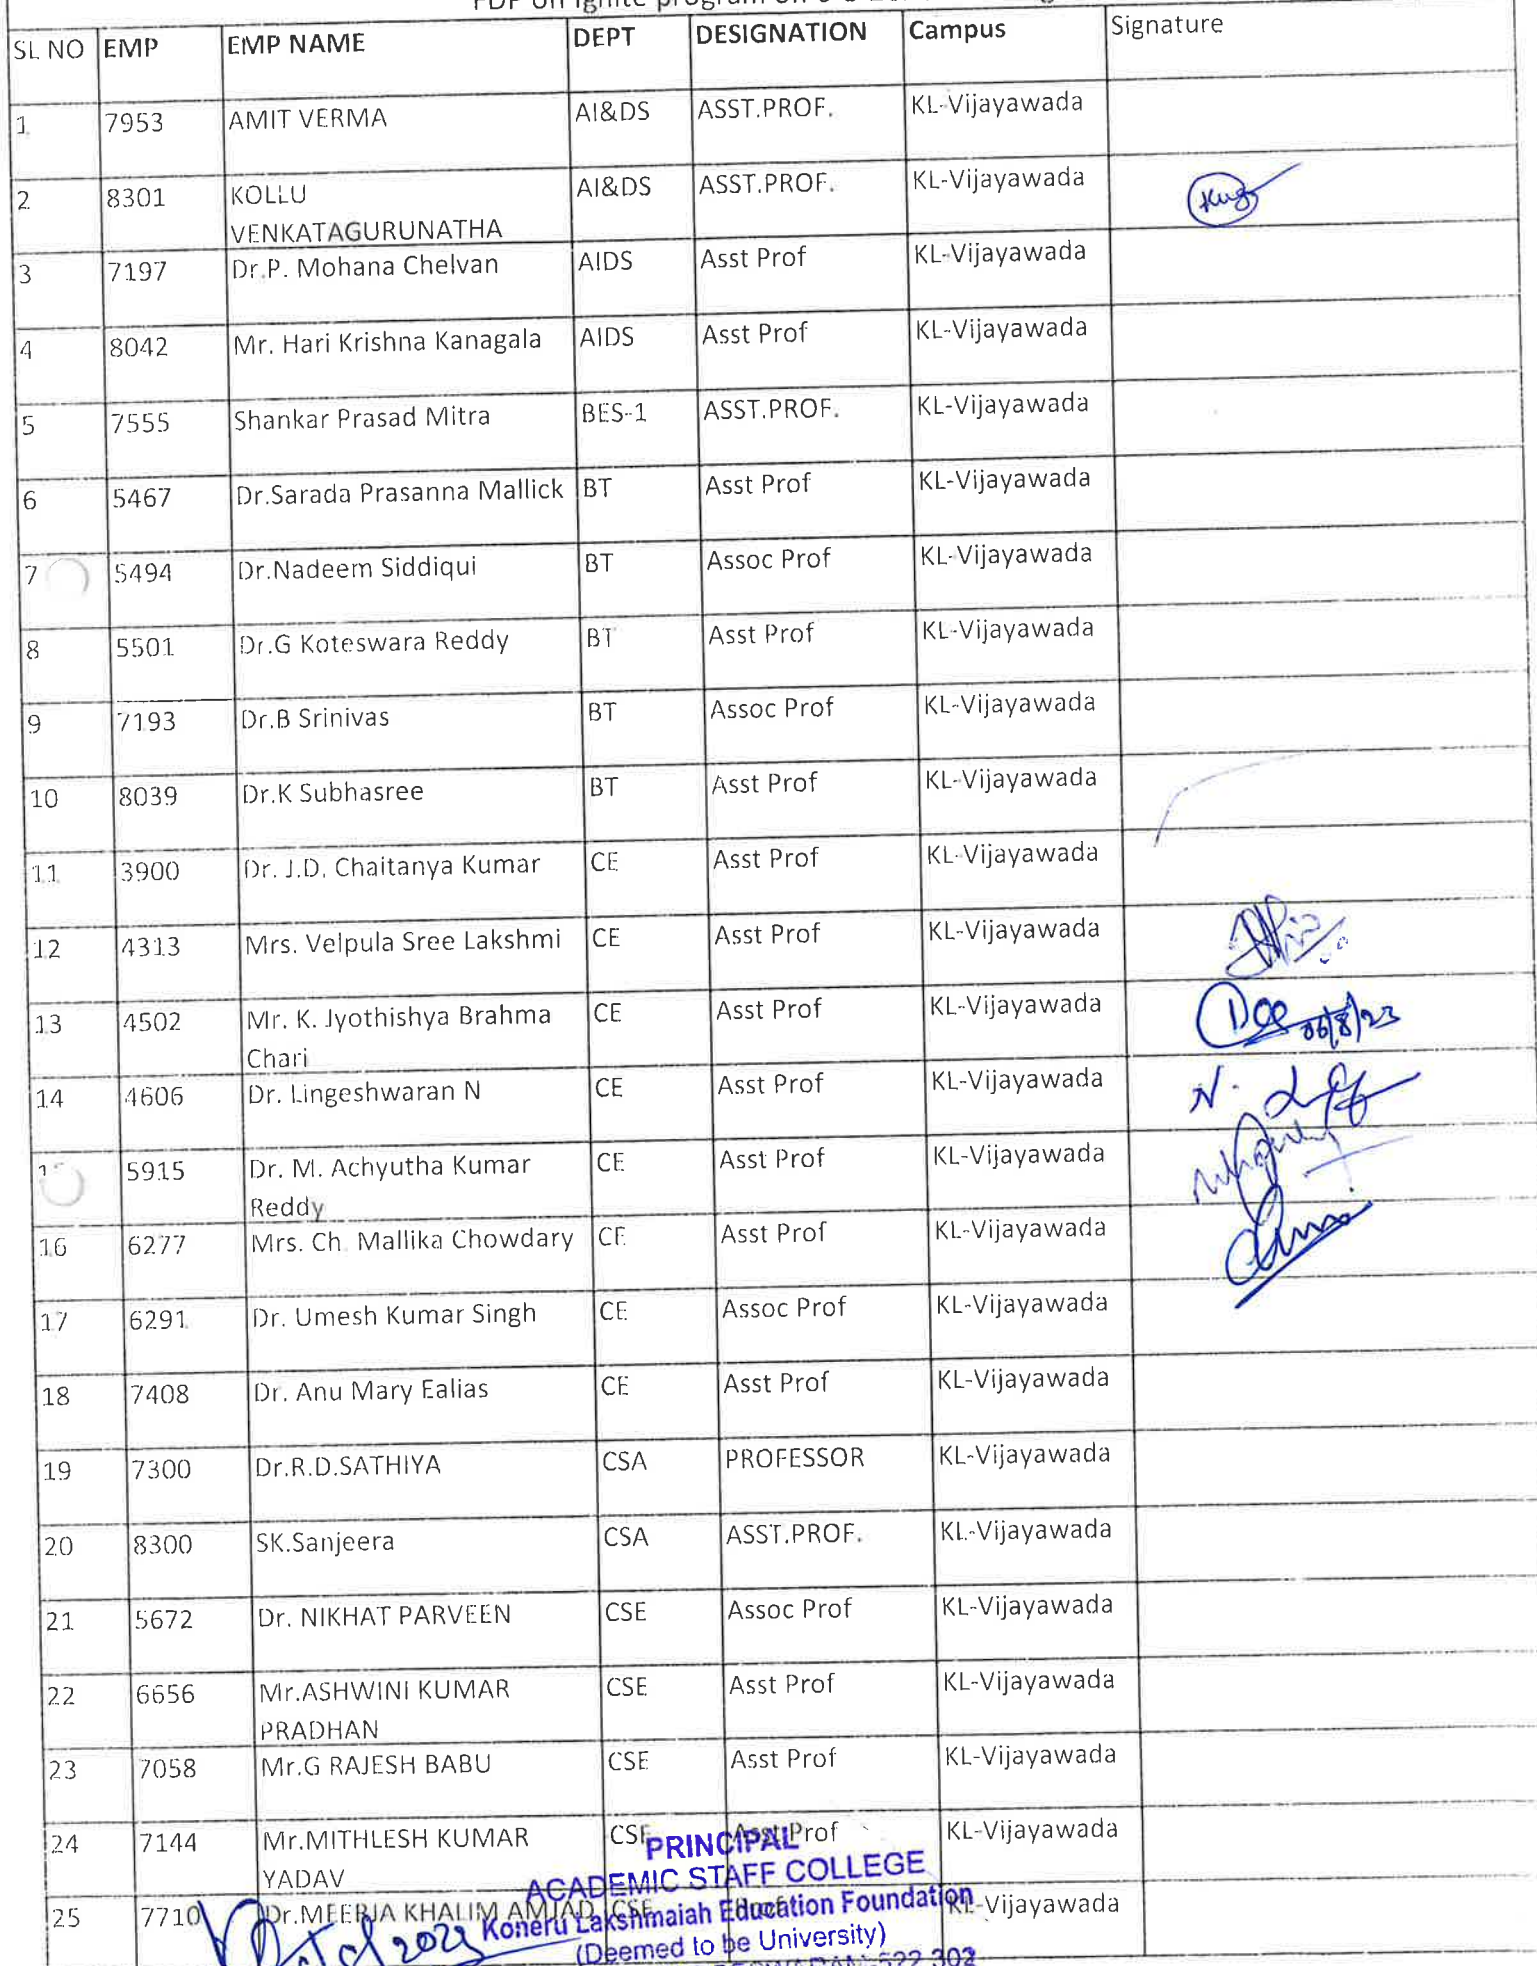 SL NO EMP EMP NAME DEPT DESIGNATION Campus Signature
1 7953 AMIT VERMA AI&DS ASST.PROF. KL-Vijayawada
2 8301 KOLLU AI&DS ASST.PROF. KL-Vijayawada
VENKATAGURUNATHA
3 7197 Dr.P. Mohana Chelvan AIDS Asst Prof KL-Vijayawada
4 8042 Mr. Hari Krishna Kanagala AIDS Asst Prof KL-Vijayawada
5 7555 Shankar Prasad Mitra BES-1 ASST.PROF. KL-Vijayawada
6 5467 Dr.Sarada Prasanna Mallick BT Asst Prof KL-Vijayawada
7 5494 Dr.Nadeem Siddiqui BT Assoc Prof KL-Vijayawada
8 5501 Dr.G Koteswara Reddy BT Asst Prof KL-Vijayawada
9 7193 Dr.B Srinivas BT Assoc Prof KL-Vijayawada
10 8039 Dr.K Subhasree BT Asst Prof KL-Vijayawada
11 3900 Dr. J.D. Chaitanya Kumar CE Asst Prof KL-Vijayawada
12 4313 Mrs. Velpula Sree Lakshmi CE Asst Prof KL-Vijayawada
13 4502 Mr. K. Jyothishya Brahma CE Asst Prof KL-Vijayawada 06/8/23
Chari
14 4606 Dr. Lingeshwaran N CE Asst Prof KL-Vijayawada
5915 Dr. M. Achyutha Kumar CE Asst Prof KL-Vijayawada
Reddy
16 6277 Mrs. Ch. Mallika Chowdary CE Asst Prof KL-Vijayawada
17 6291 Dr. Umesh Kumar Singh CE Assoc Prof KL-Vijayawada
18 7408 Dr. Anu Mary Ealias CE Asst Prof KL-Vijayawada
19 7300 Dr.R.D.SATHIYA CSA PROFESSOR KL-Vijayawada
20 8300 SK.Sanjeera CSA ASST.PROF. KL-Vijayawada
21 5672 Dr. NIKHAT PARVEEN CSE Assoc Prof KL-Vijayawada
22 6656 Mr.ASHWINI KUMAR CSE Asst Prof KL-Vijayawada
PRADHAN
23 7058 Mr.G RAJESH BABU CSE Asst Prof KL-Vijayawada
24 7144 Mr.MITHLESH KUMAR CSE Asst Prof KL-Vijayawada
YADAV
25 7710 Dr.MEERJA KHALIM AMJAD CSE Prof KL-Vijayawada
PRINCIPAL
ACADEMIC STAFF COLLEGE
Koneru Lakshmaiah Education Foundation
(Deemed to be University)
522 302